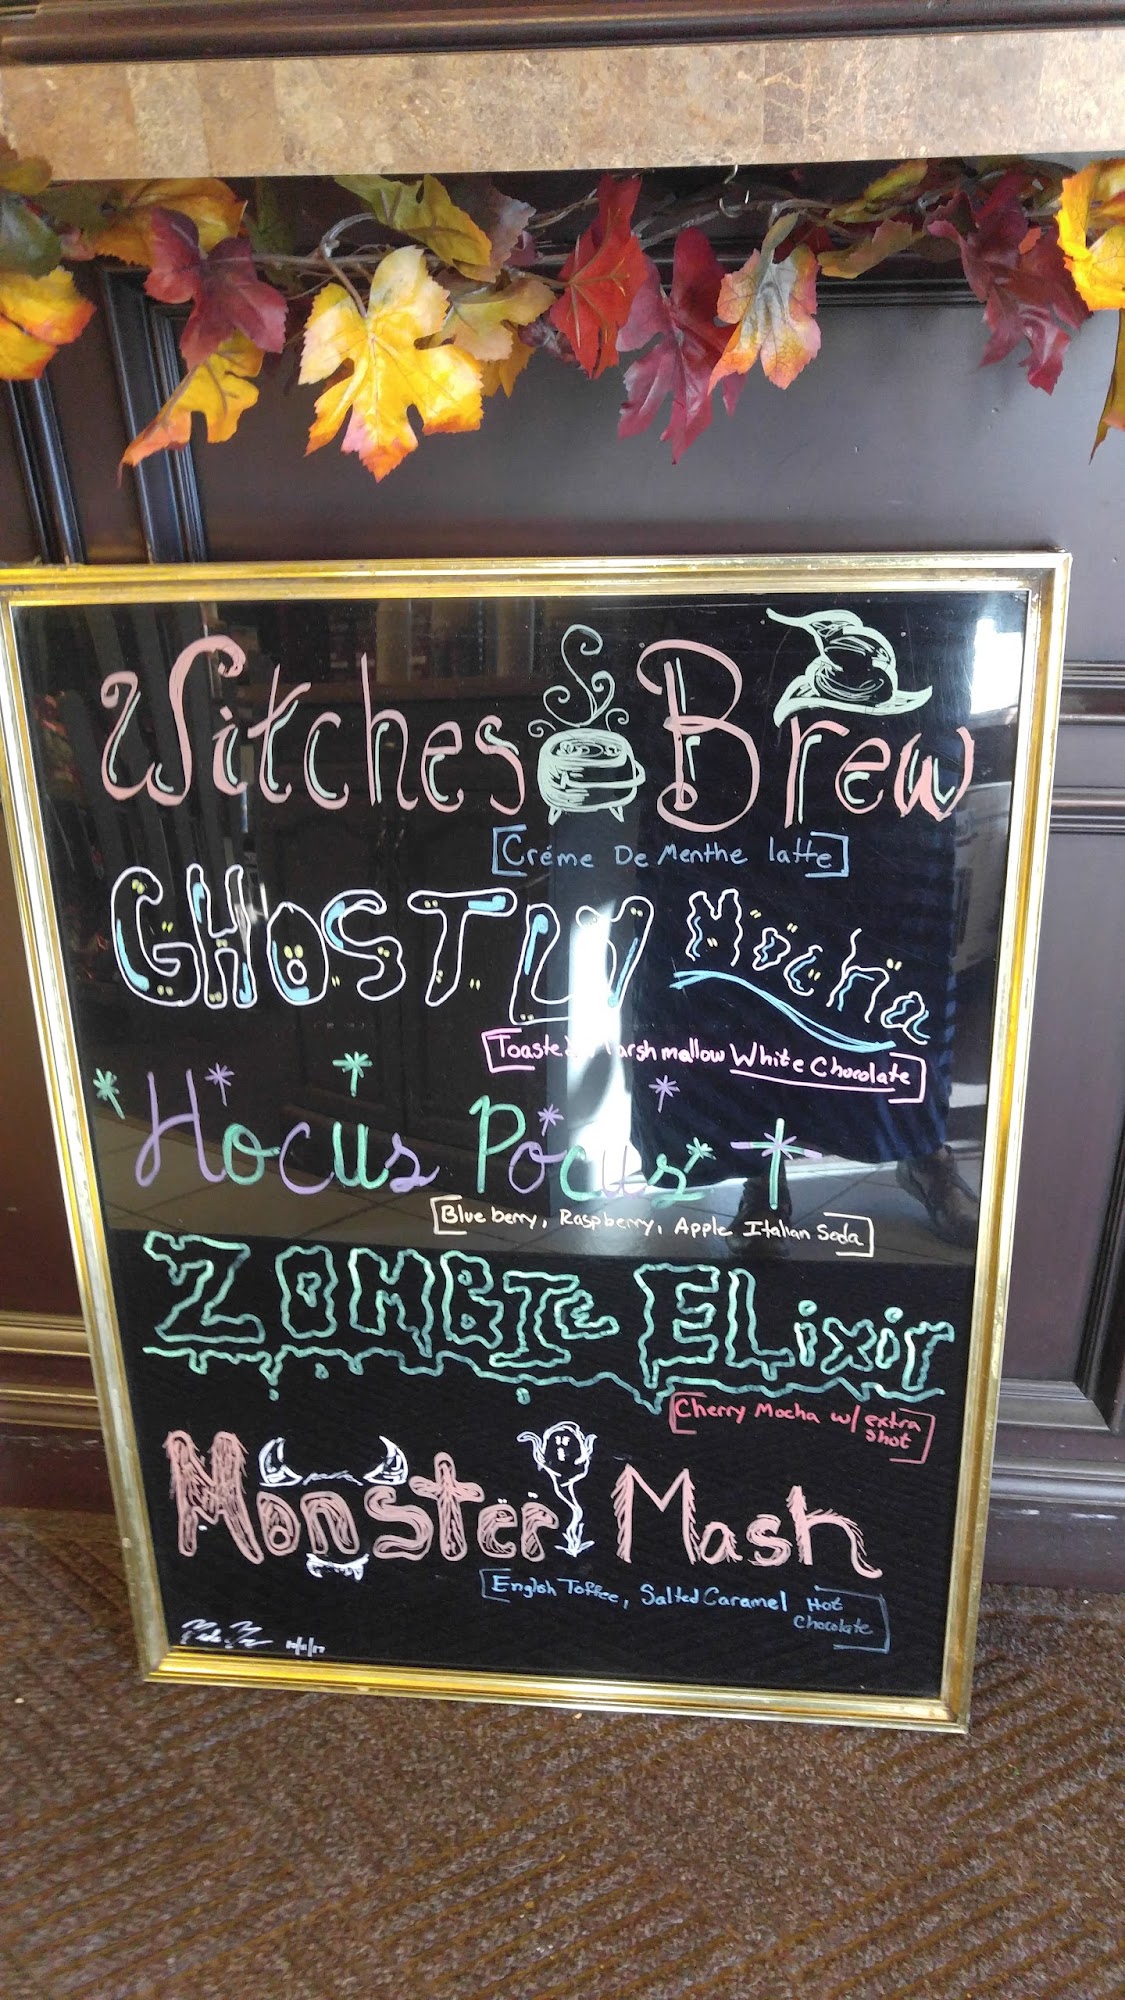 Witches Brew
[Créme De Menthe latte]
GHOSTLY Mocha
[Toasted Marshmallow White Chocolate]
Hocus Pocus
[Blueberry, Raspberry, Apple Italian Soda]
ZOMBIE ELixir
[Cherry Mocha w/ extra
shot]
Monster Mash
[English Toffee, Salted Caramel Hot
Chocolate]